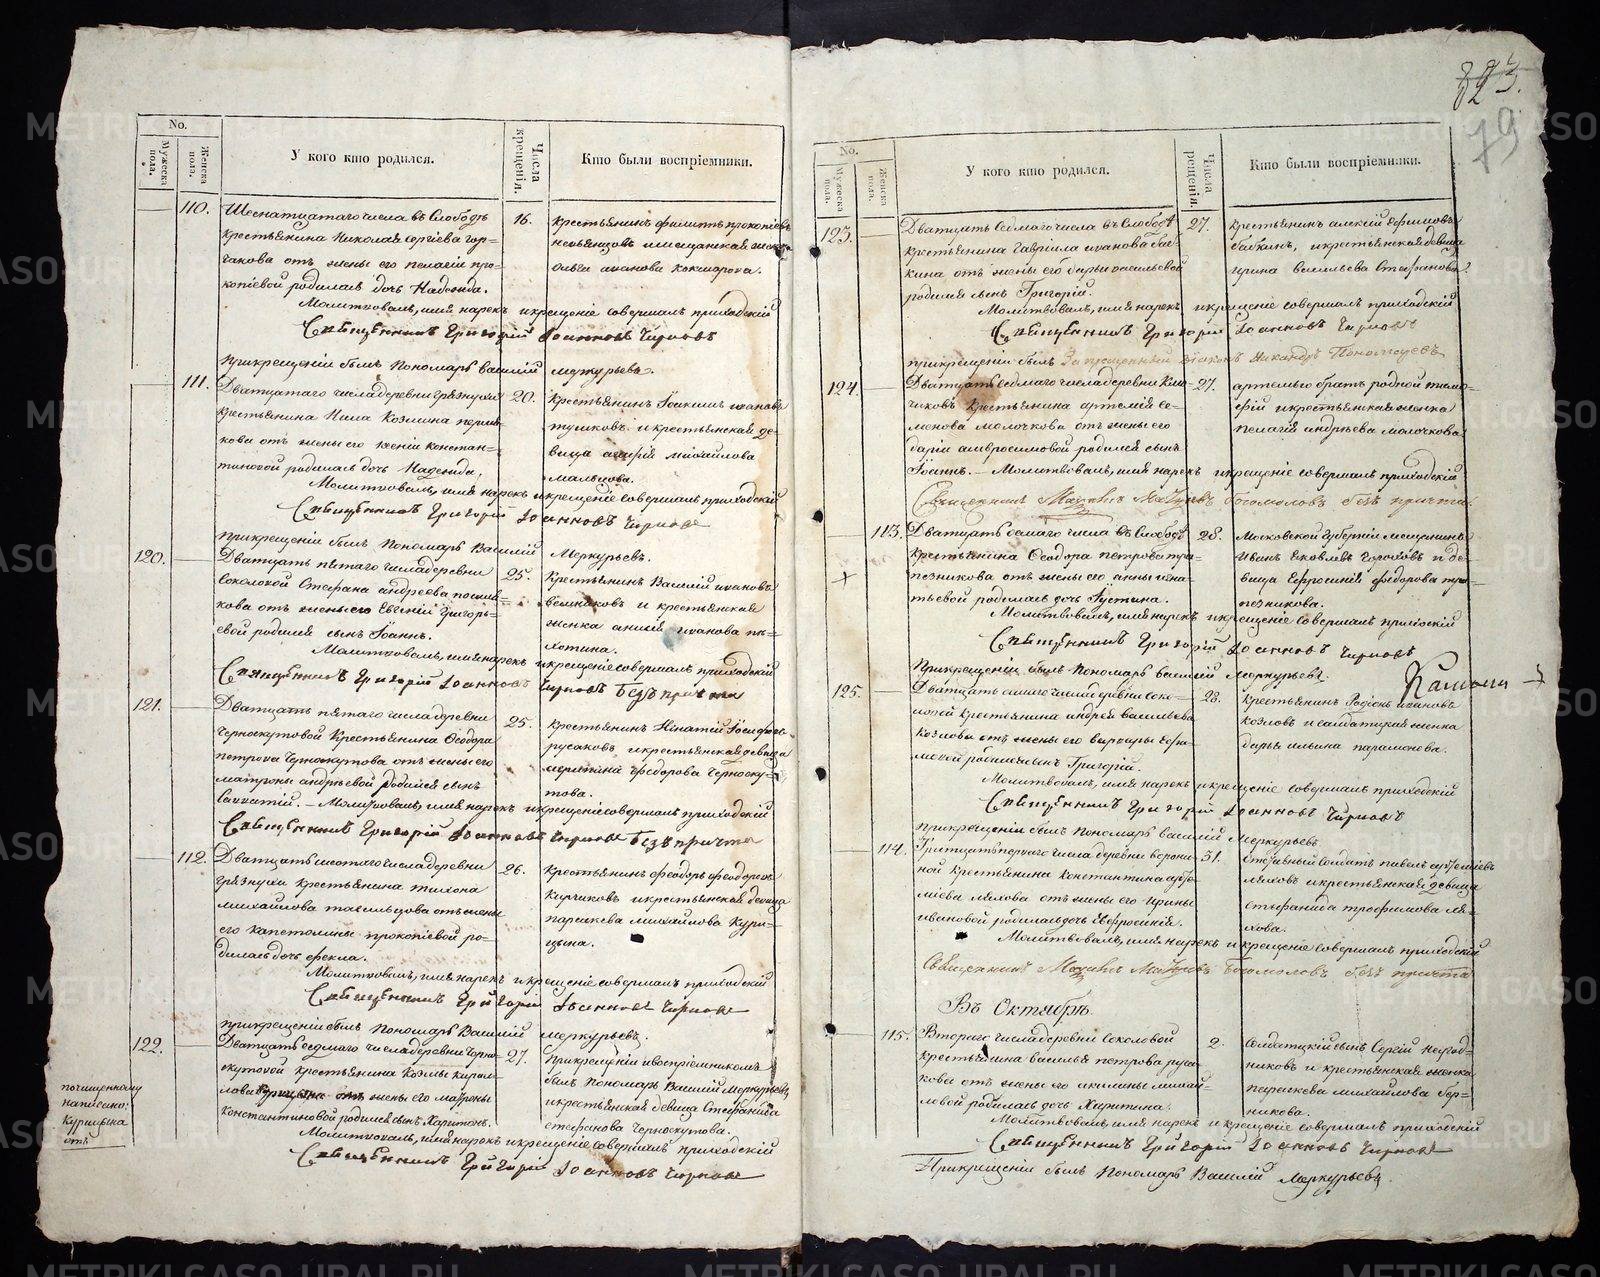 823.
79
No.
Мужеска пола.
Женска пола.
У кого кто родился.
Числа крещенія.
Кто были воспріемники.
110.
Шеснатцатаго числа въ Слободѣ
крестьянина Николая сергіева гор-
чакова отъ жены его пелагіи про-
копіевой родилась дочь Надежда.
16.
крестьянинъ филиппъ прокопіевъ
и мещанская
Ольга иванова
Молитвовалъ, имя нарекъ и крещеніе совершалъ приходскій
Священникъ Григорій Іоанновъ Чирковъ
при крещеніи былъ Пономарь василій меркурьевъ.
111.
Дватцатаго числа деревни грязнухи
крестьянина Нила Козмина
кова отъ жены его ксеніи констан-
тиновой родилась дочь Надежда.
20.
крестьянинъ Іоакимъ ивановъ
и крестьянская де-
вица михайлова
мальцова.
Молитвовалъ, имя нарекъ и крещеніе совершалъ приходскій
Священникъ Григорій Іоанновъ Чирковъ
при крещеніи былъ Пономарь Василій Меркурьевъ.
120.
Дватцать пятаго числа деревни
Соколовой Стефана андреева
кова отъ жены его Евгеніи Григорь-
евой родился сынъ Іоаннъ.
25.
Крестьянинъ Василій ивановъ
и крестьянская
женка анна иванова пи-
хотина.
Молитвовалъ, имя нарекъ и крещеніе совершалъ приходскій
Священникъ Григорій Іоанновъ Чирковъ безъ причта
121.
Дватцать пятаго числа деревни
Черноскутовой Крестьянина Ѳеодора
петрова Черноскутова отъ жены его
матроны андреевой родился сынъ
Савватій. – Молитвовалъ, имя нарекъ и крещеніе совершалъ приходскій
25.
крестьянинъ Игнатій Іосифовъ
русаковъ и крестьянская девица
федорова Черноску-
това.
Священникъ Григорій Іоанновъ Чирковъ безъ причта
112.
Дватцать шестаго числа деревни
грязнухи крестьянина тихона
михайлова отъ жены
его капетолины прокопіевой ро-
дилась дочь фекла.
26.
крестьянинъ феодоръ феодоровъ
и крестьянская девица
параскева михайлова Кури-
цына.
Молитвовалъ, имя нарекъ и крещеніе совершалъ приходскій
Священникъ Григорій Іоанновъ Чирковъ
при крещеніи былъ Пономарь Василій меркурьевъ.
122.
Дватцать седмаго числа деревни Черно-
скутовой крестьянина Козмы кирил-
лова Курицына отъ жены его мавроны
Константиновой родился сынъ Харитонъ.
27.
При крещеніи и воспріемникомъ
былъ Пономарь Василій Меркурьевъ
и крестьянская девица Стефанида
стефанова Черноскутова.
по чищенному
написано:
Курицына
отъ
Молитвовалъ, имя нарекъ и крещеніе совершалъ приходскій
Священникъ Григорій Іоанновъ Чирковъ
No.
Мужеска пола.
Женска пола.
У кого кто родился.
Числа крещенія.
Кто были воспріемники.
123.
Дватцать седмаго числа въ Слободѣ
крестьянина Гавріила иванова баб-
кина отъ жены его дарьи васильевой
родился сынъ Григорій.
27.
крестьянинъ алексій ефимовъ
бабкинъ, и крестьянская девица
ирина васильева Стефанова.
Молитвовалъ, имя нарекъ и крещеніе совершалъ приходскій
Священникъ Григорій Іоанновъ Чирковъ
при крещеніи былъ Запрещенный діаконъ Никандръ Пономаревъ
124.
Дватцать седмаго числа деревни Клю-
чиковъ крестьянина артемія се-
менова молочкова отъ жены его
даріи амвросимовой родился сынъ
Іоаннъ. – Молитвовалъ, имя нарекъ и крещеніе совершалъ приходскій
27.
артемью братъ родной тимо-
фій и крестьянская женка
пелагія андреева молочкова.
Священникъ Богомоловъ безъ причта.
113.
Дватцать осмаго числа въ Слободѣ
Крестьянина Ѳеодора петрова тра-
пезникова отъ жены его анны игна-
тьевой родилась дочь Іустина.
28.
Московской Губерніи мещанинъ
Иванъ Яковлевъ и де-
вица Ефросинія федорова тра-
пезникова.
Молитвовалъ, имя нарекъ и крещеніе совершалъ приходскій
Священникъ Григорій Іоанновъ Чирковъ
При крещеніи былъ Пономарь василій Меркурьевъ.
125.
Дватцать осмаго числа деревни Соко-
ловой крестьянина андрея васильева
козлова отъ жены его варвары ефи-
мовой родился сынъ Григорій.
28.
крестьянинъ Родіонъ ивановъ
козловъ и салдатцкая женка
дарья ильина парамонова.
Молитвовалъ, имя нарекъ и крещеніе совершалъ приходскій
Священникъ Григорій Іоанновъ Чирковъ
при крещеніи былъ Пономарь василій Меркурьевъ
114.
Тритцать перваго числа деревни ворони-
ной крестьянина Константина арте-
міева ляхова отъ жены его ирины
ивановой родилась дочь Евфросинія.
31.
отставный солдатъ павелъ артеміевъ
ляховъ и крестьянская девица
стефанида трофимова ля-
хова.
Молитвовалъ, имя нарекъ и крещеніе совершалъ приходскій
Священникъ Богомоловъ безъ причта
Въ Октябрѣ.
115.
Втораго числа деревни Соколовой
крестьянина василья петрова руса-
кова отъ жены его акилины михай-
ловой родилась дочь Харитина.
2.
Солдатцкій сынъ Сергій
никовъ и крестьянская женка
параскева михайлова бор-
никова.
Молитвовалъ, имя нарекъ и крещеніе совершалъ приходскій
Священникъ Григорій Іоанновъ Чирковъ
При крещеніи былъ Пономарь Василій Меркурьевъ.
METRIKI.GASO-URAL.RU